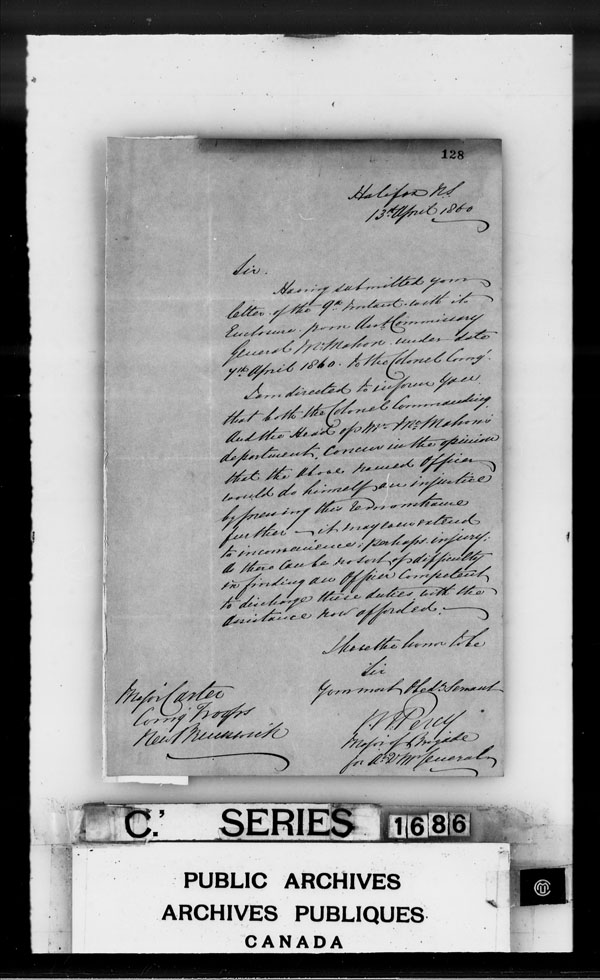 128
Halifax NS
13th April 1860
Sir,
Having submitted your
letter of the 9th Instant with its
Enclosure from Asst Commissary
General McMahon under date
7th April 1860 to the Colonel Comg.
I am directed to inform you
that both the Colonel Commanding
and the Head of Mr McMahon's
department, concur in the opinion
that the above named Officer
would do himself an injustice
by pressing this Remonstrance
further — it may even extend
to inconvenience; perhaps injury:
as there can be no sort of difficulty
in finding an Officer Competent
to discharge these duties with the
assistance now afforded. —
I have the honor to be
Sir
Your most Obedt Servant
Percy
Major of Brigade
for General
Major Carter
Comg Troops
New Brunswick
C.' SERIES 1686
PUBLIC ARCHIVES
ARCHIVES PUBLIQUES
CANADA